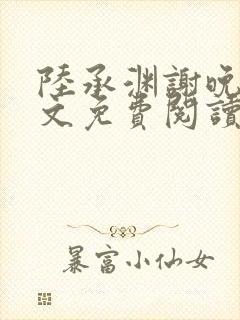 陸承渊謝晚
文免費閱讀
暴富小仙女